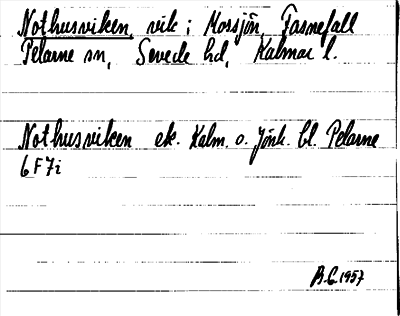 Nothusviken, vik i Mossjön, Fasnefall
Pelarne sn, Sevede hd, Kalmar l.
Nothusviken ek. Kalm. o. Jönk. bl. Pelarne
6F7i
B.G. 1957